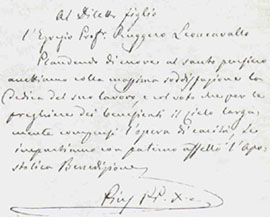 Al Diletto figlio
l'Egregio Prof. Ruggero Leoncavallo
Plaudendo di cuore al santo pensiero
accettiamo colla massima soddisfazione la
Dedica del suo lavoro, e col voto che per le
preghiere dei beneficati il cielo larga-
mente compensi l'opera di carità Le
impartiamo con paterno affetto l'Apo-
stolica Benedizione
Pius PP. X.